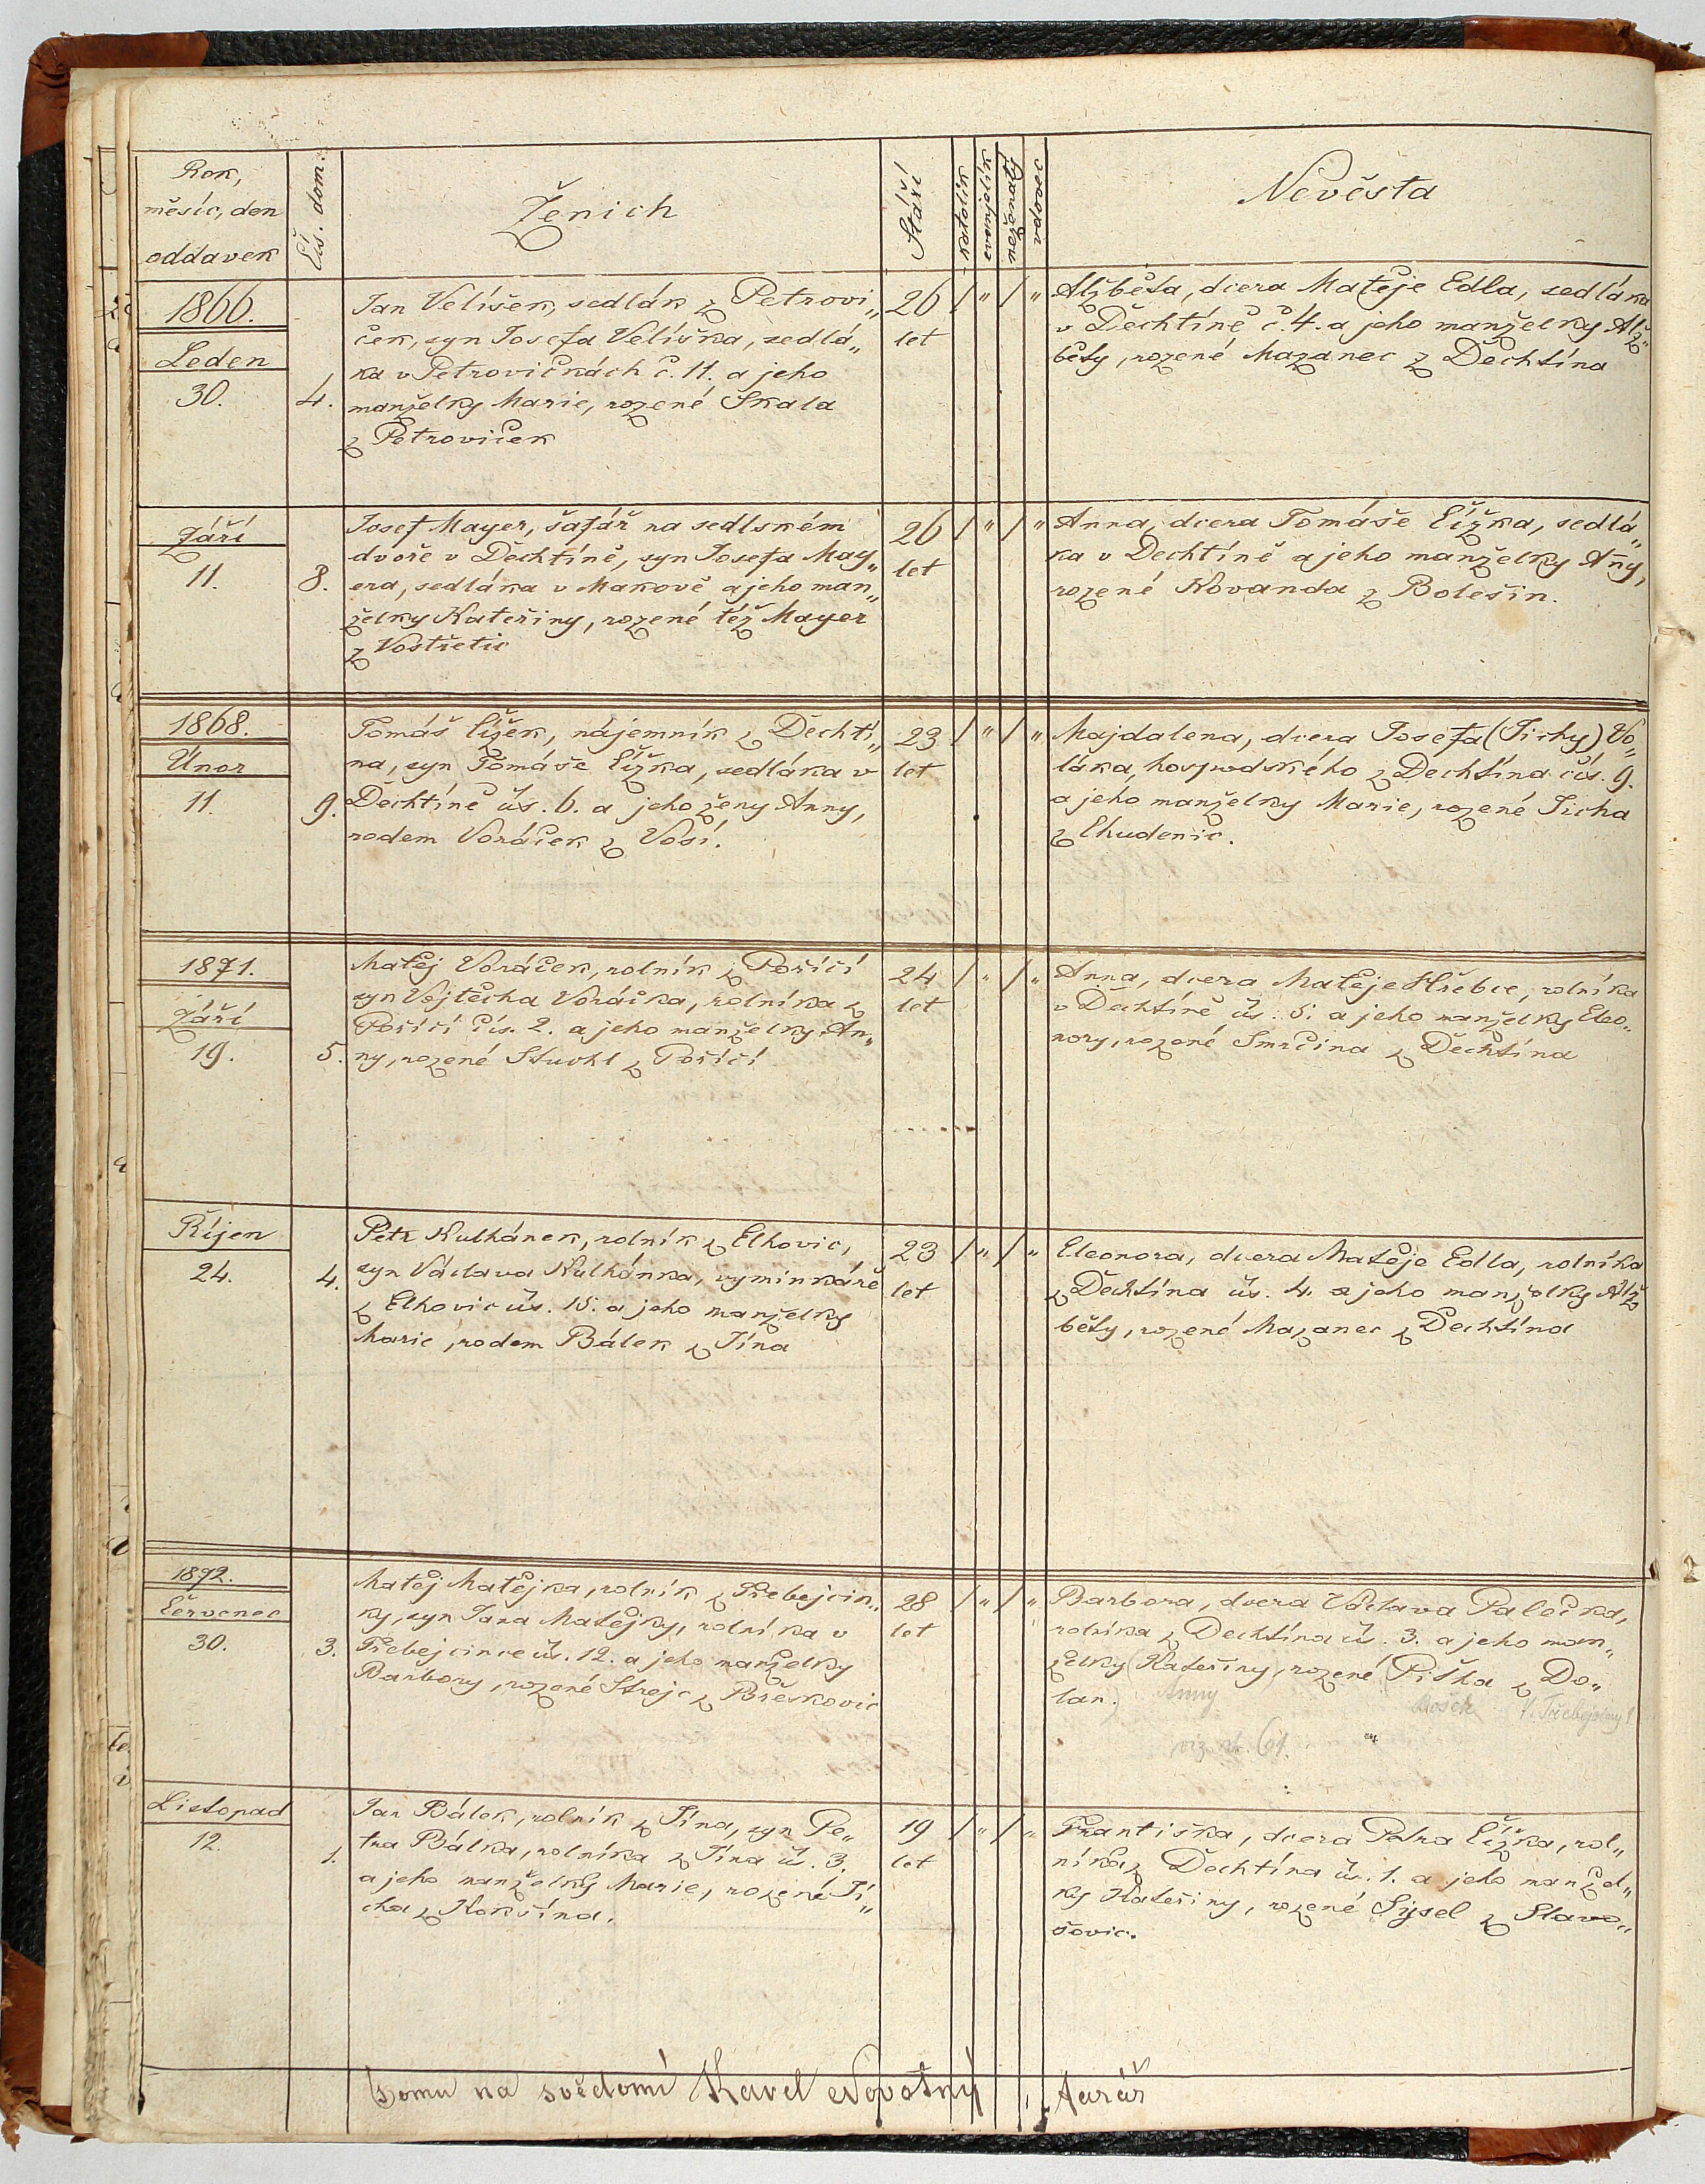 Rok,
měsíc, den
oddavek
Čís. dom.
Ženich
Stáří
katolík
evanjelík
neženatý
vdovec
Nevěsta
1866.
Leden
30.
4.
Jan Velíšek, sedlák z Petrovi„
ček, syn Josefa Velíška, sedlá„
ka v Petrovičkách č. 11. a jeho
manželky Marie, rozené Skala
z Petroviček
26
let
/ " / "
Alžběta, dcera Matěje Edla, sedláka
v Dechtíně č. 4. a jeho manželky Alž„
běty, rozené Mazanec z Dechtína
Září
11.
8.
Josef Mayer, šafář na sedlském
dvoře v Dechtíně, syn Josefa May„
era, sedláka v Makově a jeho man„
želky Kateřiny, rozené též Mayer
z Vostřetic
26
let
/ " / "
Anna, dcera Tomáše Čížka, sedlá„
ka v Dechtíně a jeho manželky Ањy,
rozené Kovanda z Bolešin.
1868.
Únor
11.
9.
Tomáš Čížek, nájemník z Dechtí„
na, syn Tomáše Čížka, sedláka v
Dechtíně čís. 6. a jeho ženy Anny,
rodem Voráček z Vosí.
23
let
/ " / "
Majdalena, dcera Josefa (Tichy) Vo„
láka, hospodského z Dechtína čís. 9.
a jeho manželky Marie, rozené Ticha
z Chudenic.
1871.
Září
19.
5.
Matěj Voráček, rolník z Poříčí
syn Vojtěcha Voráčka, rolníka z
Poříčí čís. 2. a jeho manželky An„
ny, rozené Stuchl z Poříčí
24
let
/ " / "
Anna, dcera Matěje Hřebce, rolníka
v Dechtíně čís. 5. a jeho manželky Eleo„
nory, rozené Smrčina z Dechtína
Říjen
24.
4.
Petr Kulhánek, rolník z Elhovic,
syn Václava Kulhánka, vyminkáře
z Elhovic čís. 15. a jeho manželky
Marie, rodem Bálek z Tína
23
let
/ " / "
Eleonora, dcera Matěje Edla, rolníka
z Dechtína čís. 4. a jeho manželky Alž
běty, rozené Mazanec z Dechtína
1872.
Červenec
30.
3.
Matěj Matějka, rolník z Třebejcin„
ky, syn Jana Matějky, rolníka v
Třebejcince čís. 12. a jeho manželky
Barbory, rozené Strejc z Břěskovic
28
let
/ " / "
Barbora, dcera Václava Palečka,
rolníka z Dechtína čís. 3. a jeho man„
želky (Kateřiny), rozené Piška z Do„
lan.) Anny Bošek
viz
Listopad
12.
1.
Jan Bálek, rolník z Tína, syn Pe„
tra Bálka, rolníka z Tína čís. 3.
a jeho manželky Marie, rozené Ti„
cha z Kokšína.
19
let
/ " / "
Františka, dcera Petra Čížka, rol„
níka z Dechtína čís. 1. a jeho manžel„
ky Kateřiny, rozené Sysel z Slavo„
šovic.
Tomu na svědomí Karel Novotný, farář